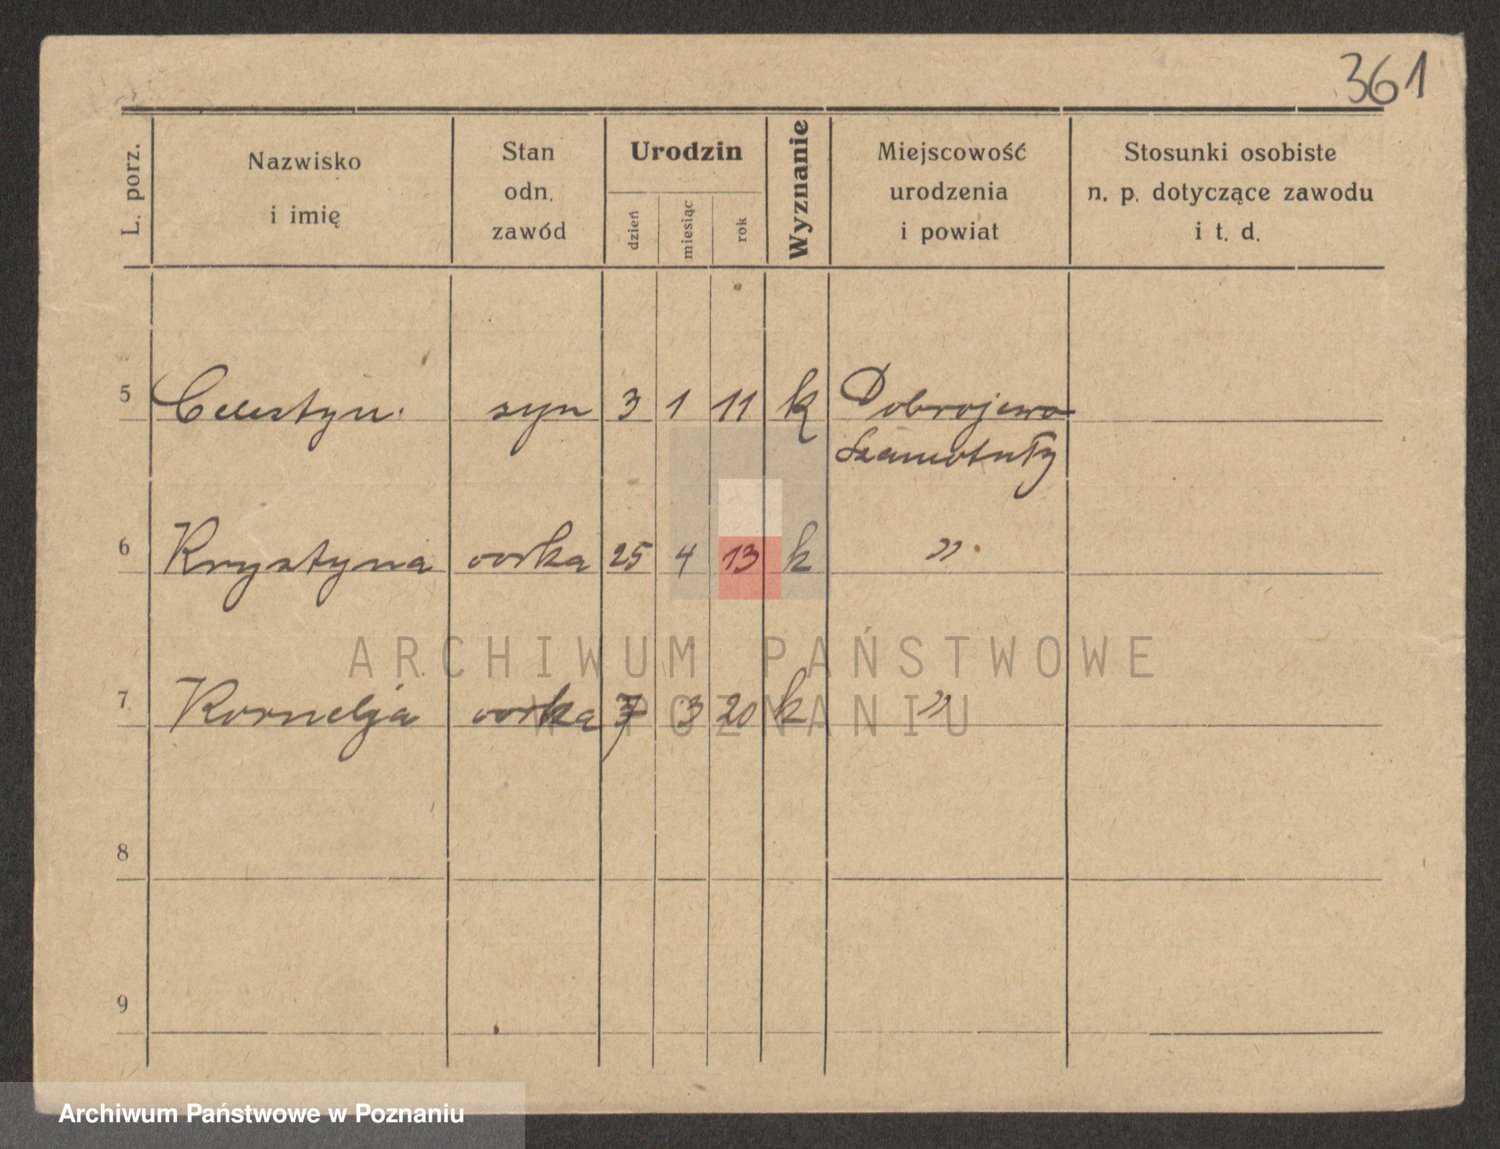 361
L. porz.
Nazwisko
i imię
Stan
odn.
zawód
Urodzin
dzień
miesiąc
rok
Wyznanie
Miejscowość
urodzenia
i powiat
Stosunki osobiste
n. p. dotyczące zawodu
i t. d.
5 Celestyn syn 3 1 11 k Dobrojewo
Szamotuły
6 Krystyna córka 25 4 13 k "
ARCHIWUM PAŃSTWOWE
7 Kornelja córka 3 20 k "
W POZNANIU
8
9
Archiwum Państwowe w Poznaniu